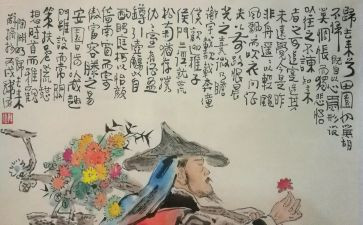 歸去來兮田園將蕪胡
不歸既自以心為形役
奚惆悵而獨悲悟
以往之不諫知來
者之可追寔迷其
途未遠覺今是而昨
非舟遙遙以輕
颺風飄飄而吹衣問征
夫以前路恨晨
光之熹微乃瞻
衡宇載欣載奔僮
僕歡迎稚子
候門三徑就荒
松菊猶存攜
幼入室有酒盈
樽引壺觴以自
酌眄庭柯以怡顏
倚南窗以寄
傲審容膝之易
安園日涉以成趣
門雖設而常關
策扶老以流憩
時矯首而遐觀